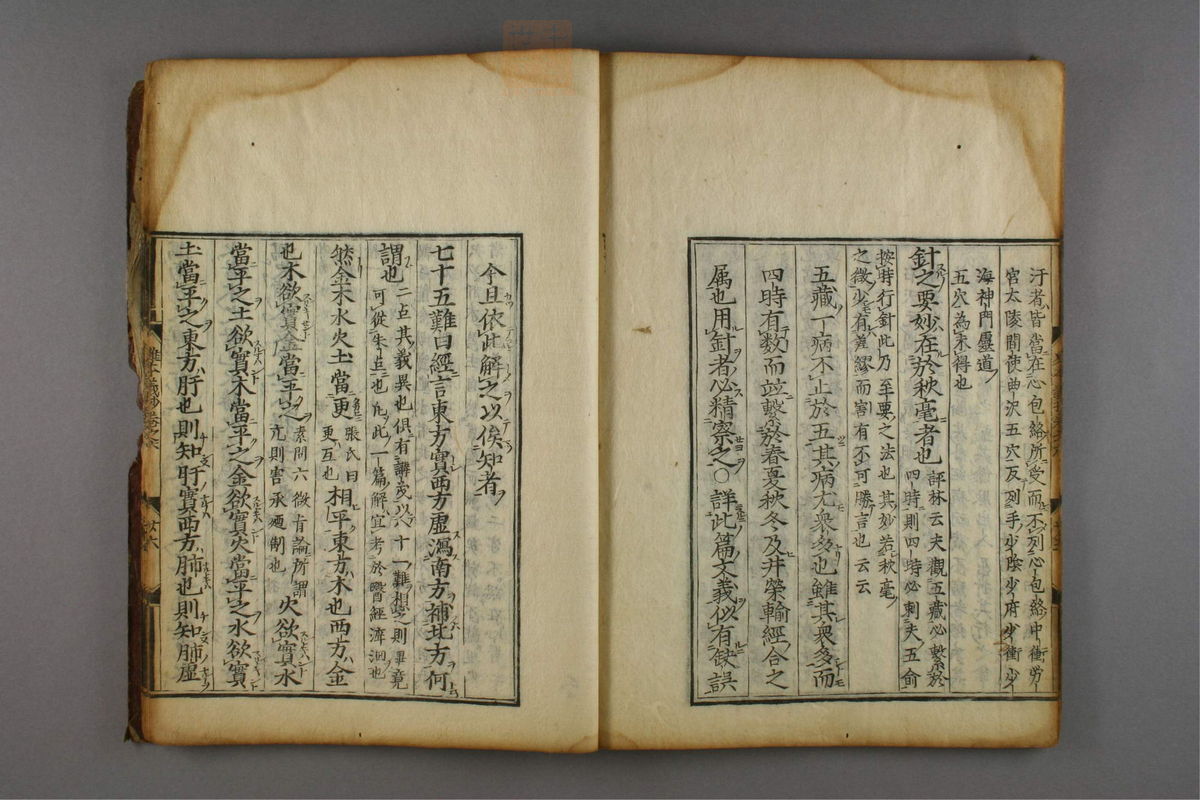 汙者皆當在心包絡所受而不列心包絡中衝勞
宮太陵間使曲沢五穴反列手少陰少府少衝少
海神門靈道
五穴為未得也
針之要妙在於秋毫者也
評林云夫觀五藏必繫於
四時則四時必刺夫五俞
按時行針此乃至要之法也其妙若秋毫
之微少有差繆而害有不可勝言也云云
五藏一病不止於五其病尤衆多也雖其衆多而
四時有数而並繫於春夏秋冬及井榮輸經合之
属也用針者必精察之〇詳此篇文義似有缺誤
今且依此解之以俟知者
七十五難曰經言東方實西方虛瀉南方補北方何
謂也
二点其義異也俱有講或以十一難想之則畢竟
可從朱点也凢此一篇解宜考於醫經濟洄也
然金木水火土當更
張氏曰
更互也
相平東方木也西方金
也木欲實金當平之
素問六微旨論所謂
亢則害承廼制也
火欲實水
當平之土欲實木當平之金欲實火當平之水欲實
土當平之東方肝也則知肝實西方肺也則知肺虛